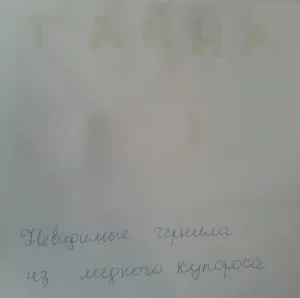 ТАЙНА
Невидимые чернила
из медного купороса